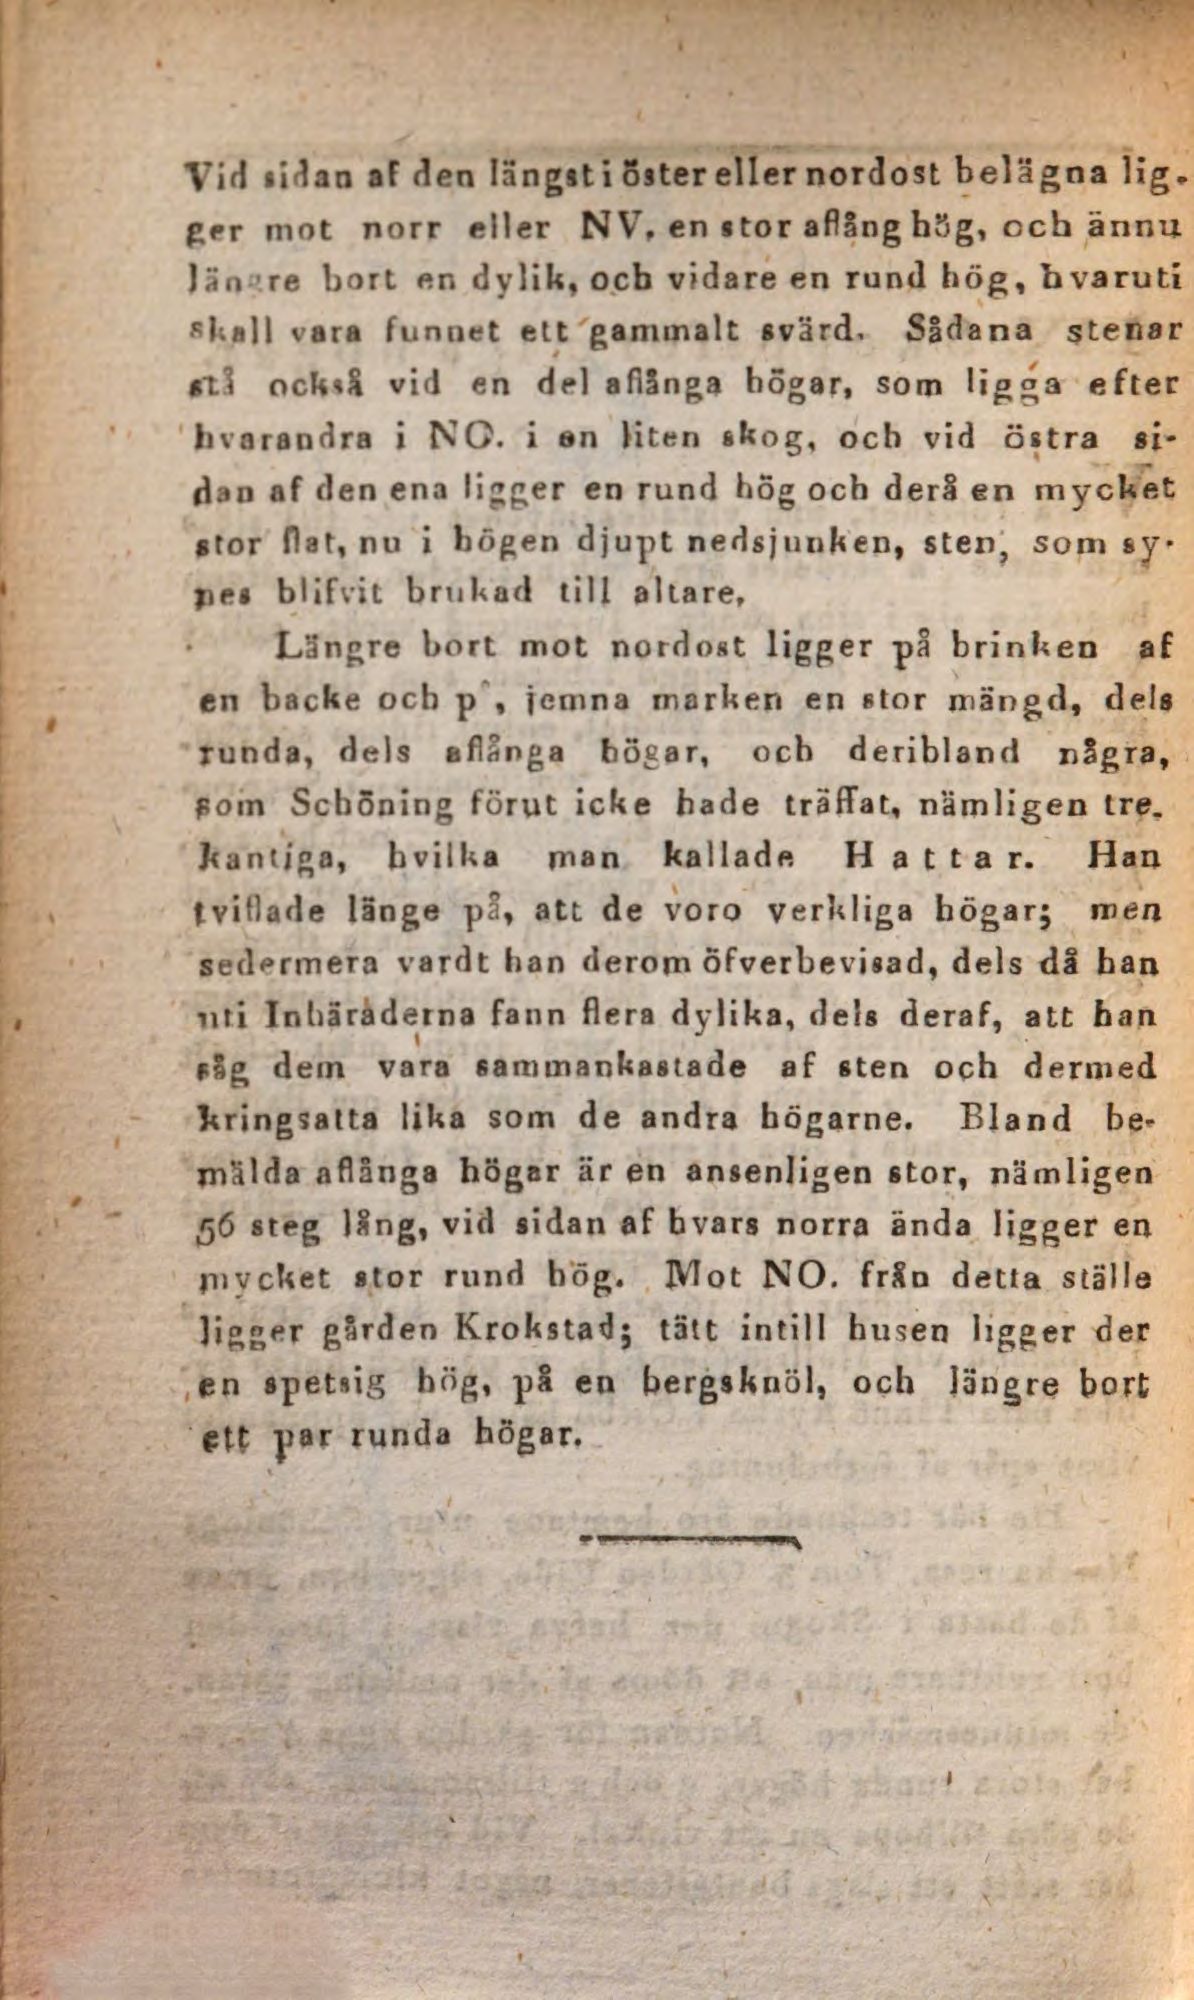 Vid sidan af den längst i öster eller nordost belägna lig-
ger mot norr eller NV. en stor aflång hög, och ännu
längre bort en dylik, och vidare en rund hög, hvaruti
skall vara funnet ett gammalt svärd. Sådana stenar
stå också vid en del aflånga högar, som ligga efter
hvarandra i NO. i en liten skog, och vid östra si-
dan af den ena ligger en rund hög och derå en mycket
stor flat, nu i högen djupt nedsjunken, sten, som sy-
nes blifvit brukad till altare.
Längre bort mot nordost ligger på brinken af
en backe och p , jemna marken en stor mängd, dels
runda, dels aflånga högar, och deribland några,
som Schöning förut icke hade träffat, nämligen tre-
kantiga, hvilka man kallade Hattar. Han
tviflade länge på, att de voro verkliga högar; men
sedermera vardt han derom öfverbevisad, dels då han
uti Inhäraderna fann flera dylika, dels deraf, att han
såg dem vara sammankastade af sten och dermed
kringsatta lika som de andra högarne. Bland be-
mälda aflånga högar är en ansenligen stor, nämligen
56 steg lång, vid sidan af hvars norra ända ligger en
mycket stor rund hög. Mot NO. från detta ställe
ligger gården Krokstad; tätt intill husen ligger der
en spetsig hög, på en bergsknöl, och längre bort
ett par runda högar.